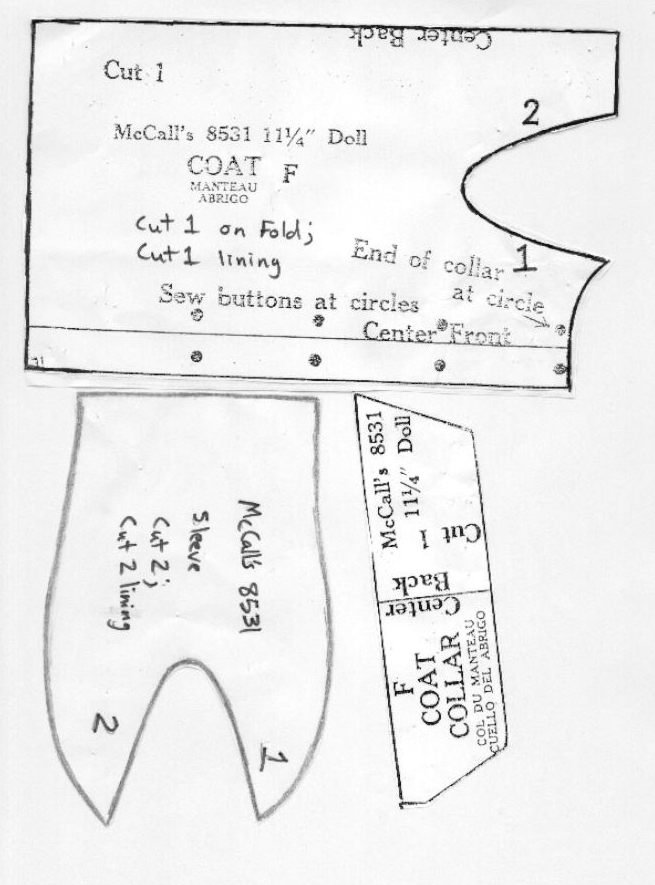 Center Back
Cut 1
2
McCall's 8531 11¼" Doll
COAT F
MANTEAU
ABRIGO
Cut 1 on Fold;
Cut 1 lining
End of collar
at circle
1
Sew buttons at circles
Center Front
McCall's 8531
Sleeve
Cut 2;
Cut 2 lining
1
2
McCall's 8531
11¼" Doll
Cut 1
Center
Back
F
COAT
COLLAR
COL DU MANTEAU
CUELLO DEL ABRIGO